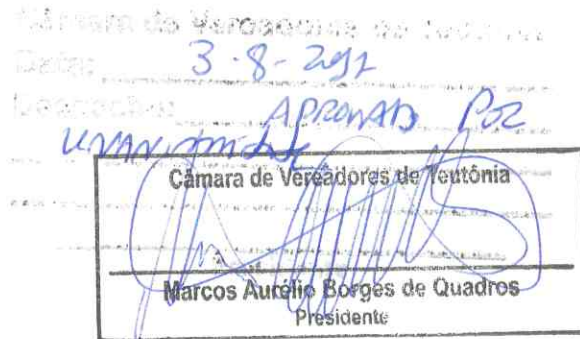 Câmara de Vereadores de Teutônia
Data: 3-8-
Despacho: APROVADO POR
UNANIMIDADE
Câmara de Vereadores de Teutônia
Marcos Aurélio Borges de Quadros
Presidente